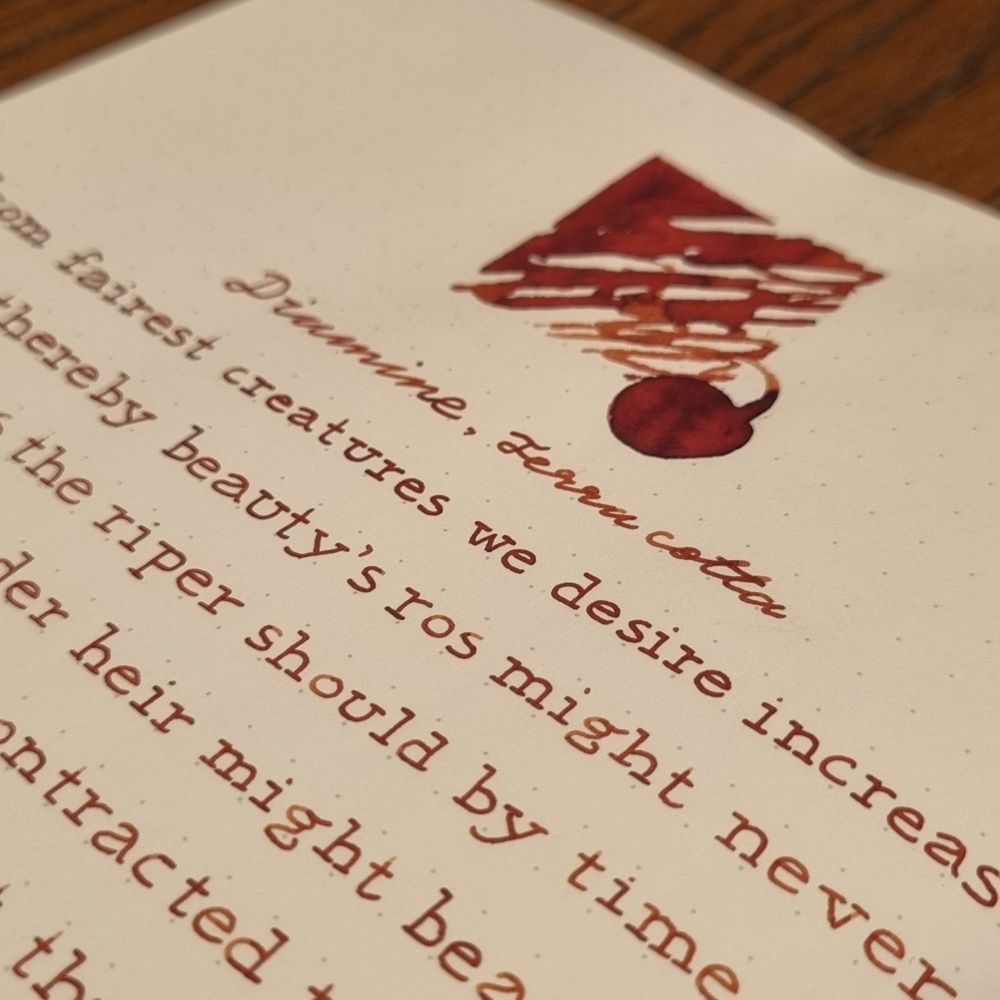 Diamine, Terra cotta
rom fairest creatures we desire increas
thereby beauty's ros might never
the riper should by time
der heir might bea
ontracted t
th